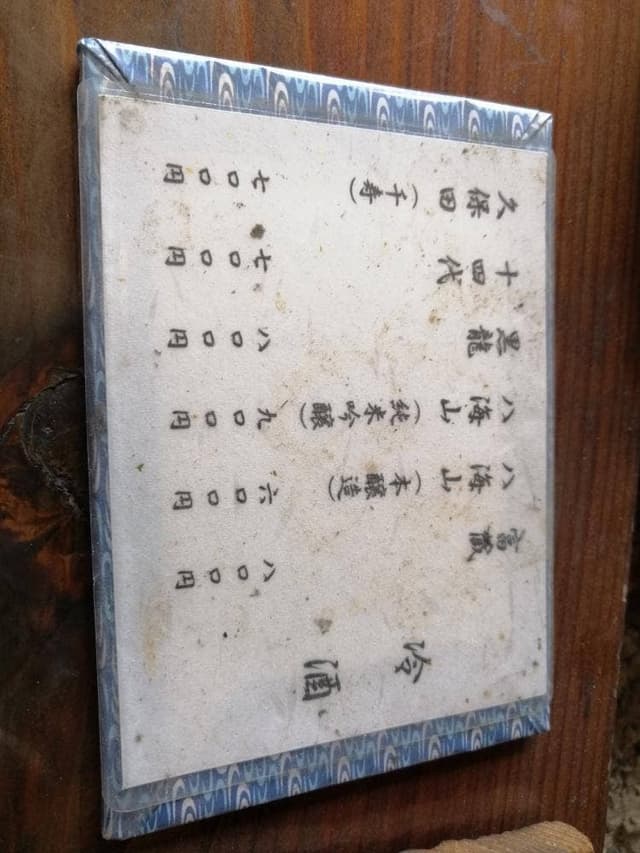 冷酒
富蔵 八〇〇円
八海山(本醸造) 六〇〇円
八海山(純米吟醸) 九〇〇円
黒龍 八〇〇円
十四代 七〇〇円
久保田(千寿) 七〇〇円